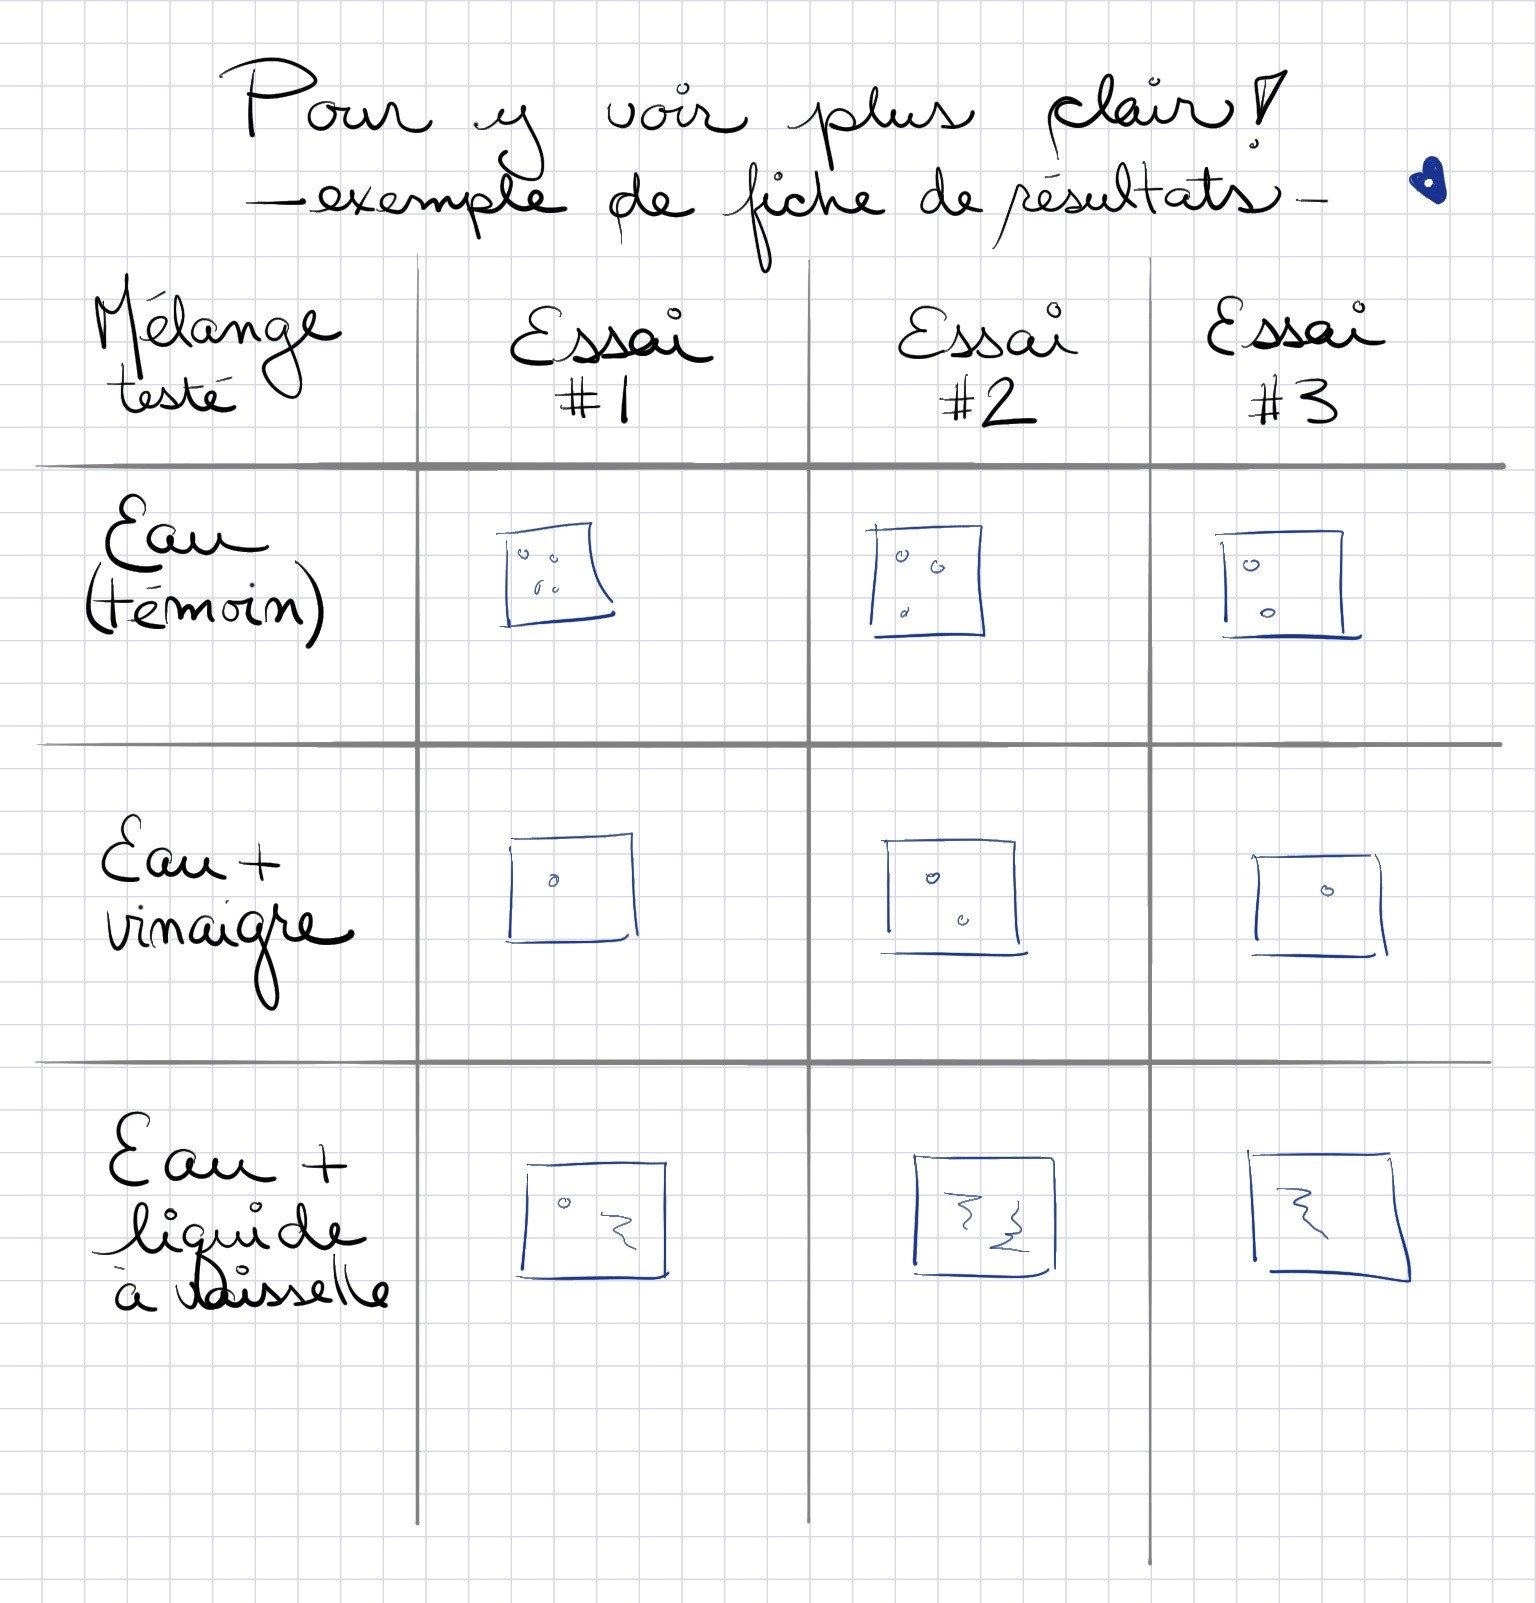 Pour y voir plus clair!
- exemple de fiche de résultats -
Mélange testé
Essai #1
Essai #2
Essai #3
Eau
(témoin)
Eau +
vinaigre
Eau +
liquide
à vaisselle